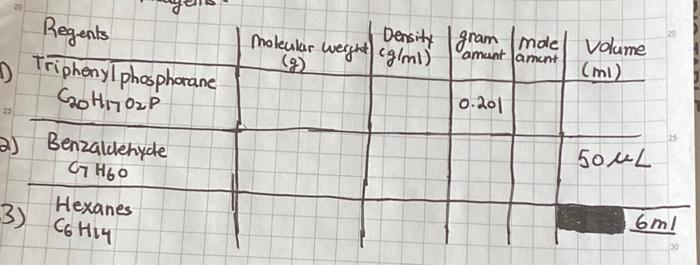 Regents
Molecular weight (g)
Density (g/ml)
gram amunt
mole amunt
Volume (ml)
1) Triphenylphosphorane
C20H17O2P
0.201
2) Benzaldehyde
C7H6O
50 μL
3) Hexanes
C6H14
6ml
20
25
20
25
30